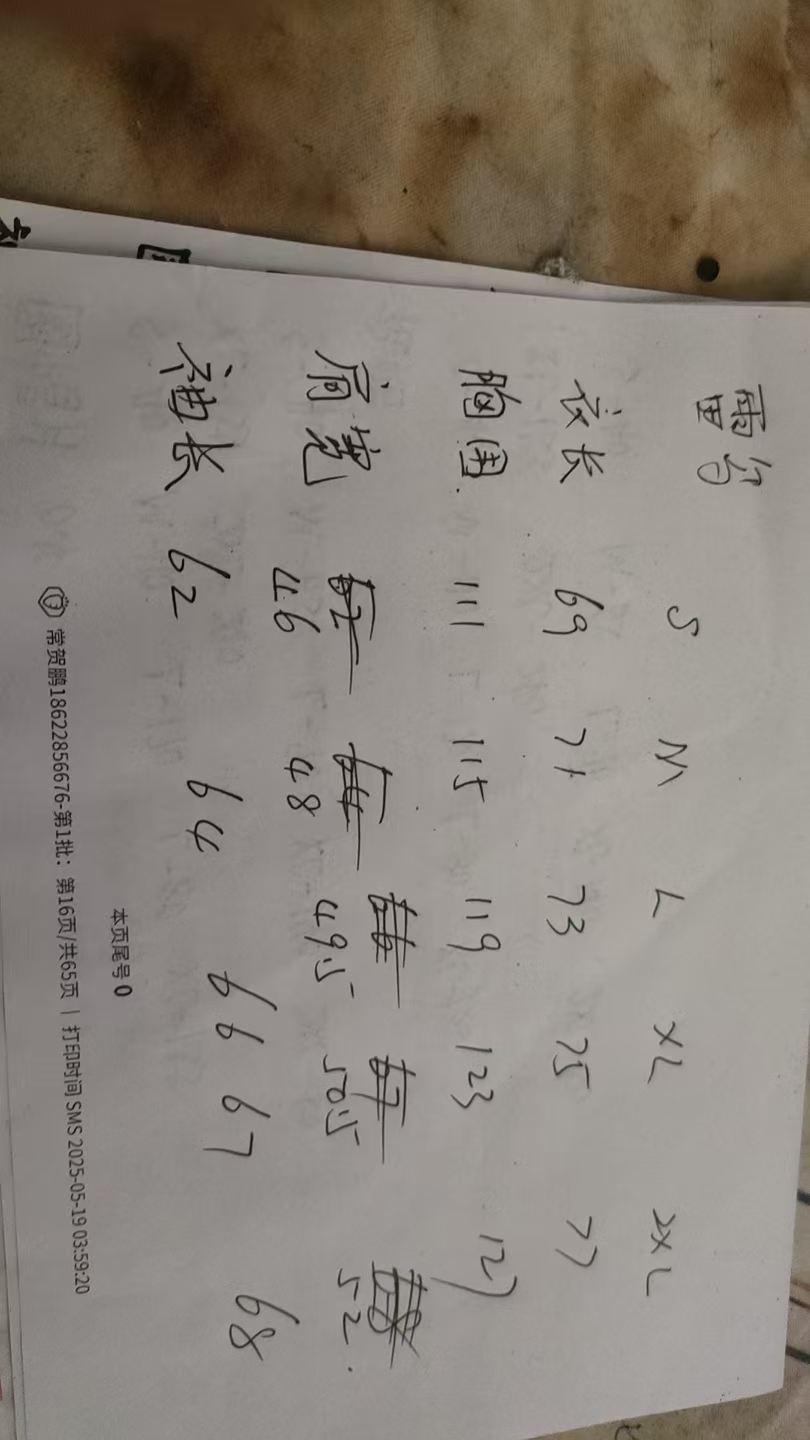 S M L XL 2XL
衣长 69 71 73 75 77
胸围 111 115 119 123 127
肩宽 62 64 66 67 68
46 48 49.5 50.5 52
袖长 62 64 66 67 68
本页尾号0
常贺鹏18622856676-第1批：第16页/共65页 | 打印时间 SMS 2025-05-19 03:59:20